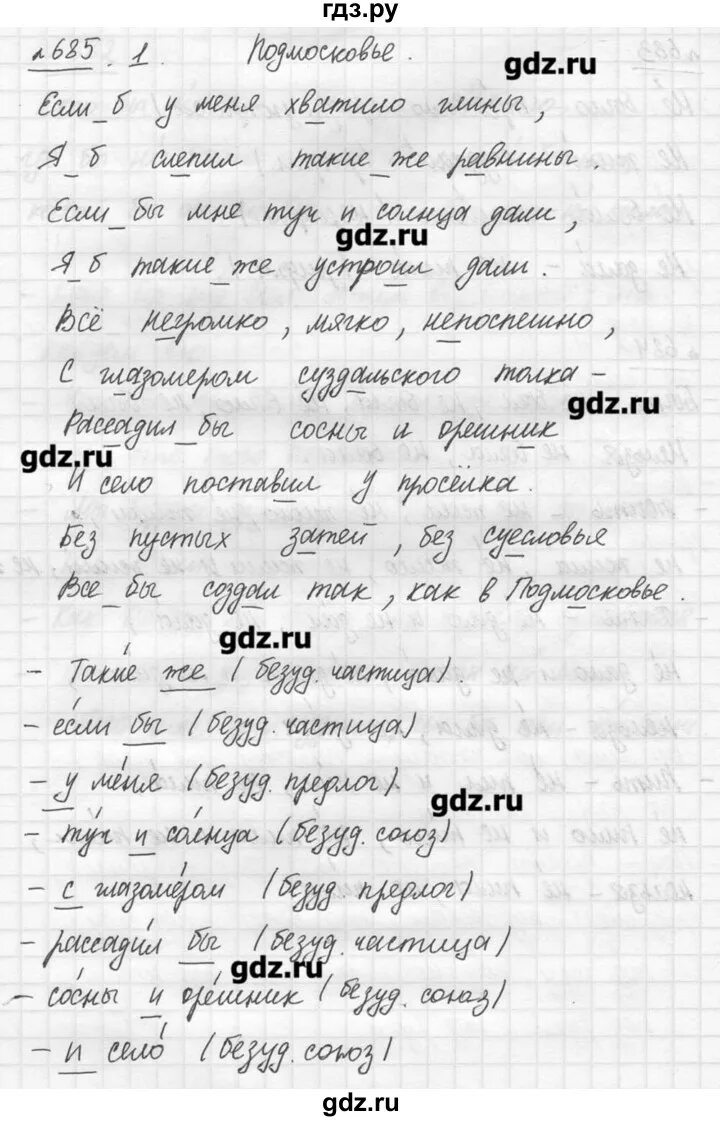 гдз.ру
№685. 1. Подмосковье.
gdz.ru
Если б у меня хватило глины,
Я б слепил такие же равнины.
Если бы мне туч и солнца дали,
gdz.ru
Я б такие же устроил дали.
Всё негромко, мягко, непоспешно,
С глазомером суздальского толка –
gdz.ru
Рассадил бы сосны и орешник
gdz.ru
И село поставил у просёлка.
Без пустых затей, без суесловья
Все бы создал так, как в Подмосковье.
gdz.ru
– Такие же (безуд. частица)
– если бы (безуд. частица)
– у меня (безуд. предлог)
gdz.ru
– туч и солнца (безуд. союз)
– с глазомером (безуд. предлог)
– рассадил бы (безуд. частица)
gdz.ru
– сосны и орешник (безуд. союз)
– и село (безуд. союз)
gdz.ru